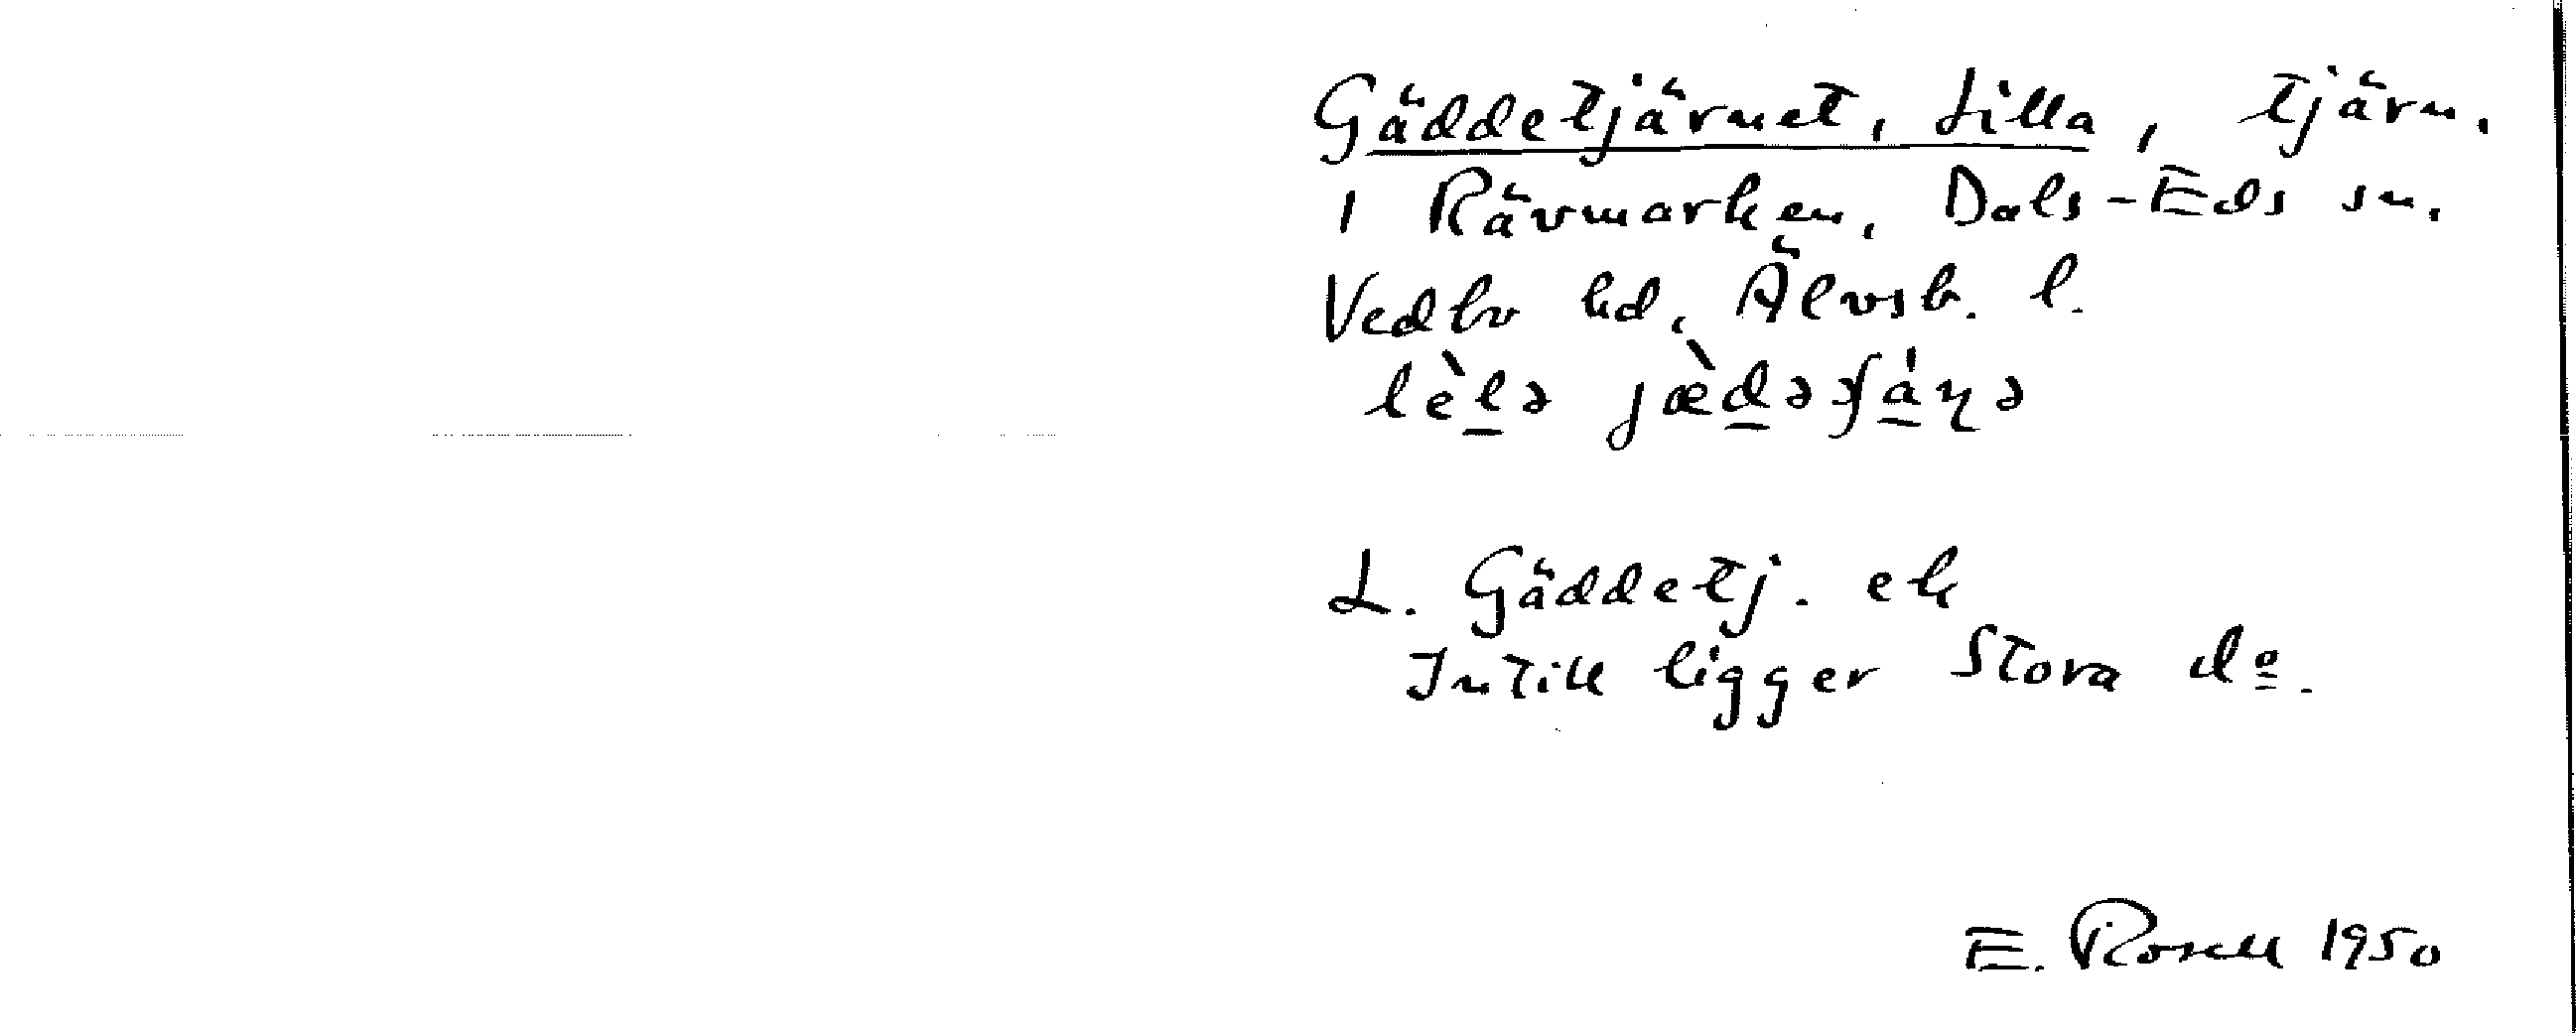 Gäddetjärnet, Lilla, tjärn.
i Rävmarken, Dals-Eds sn.
Vedbo hd, Älvsb. l.
L. Gäddetj. ek
Intill ligger Stora dº.
E. Rosell 1950